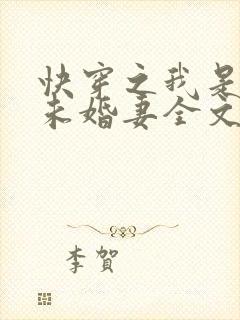 快穿之我是
未婚妻全文
李賀